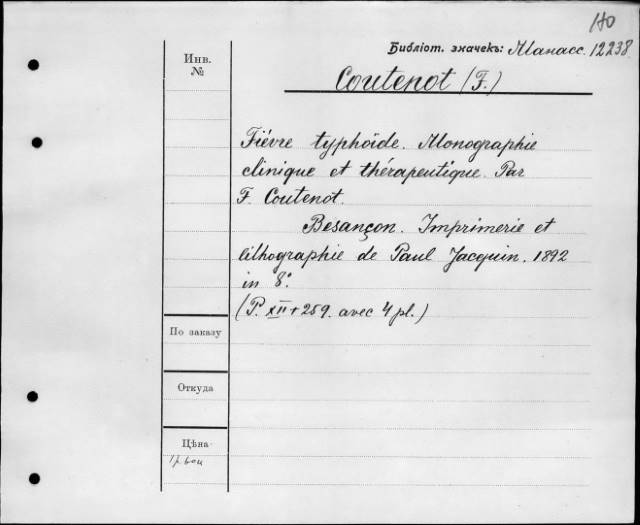 Библіот. значекъ: Манасс. 12238.
Coutenot (F.)
Инв.
№
Fiévre typhoïde. Monographie
clinique et thérapeutique. Par
F. Coutenot.
Besançon. Imprimerie et
lithographie de Paul Jacquin. 1892
in 8º.
(P. XII + 259. avec 4 pl.)
По заказу
Откуда
Цѣна